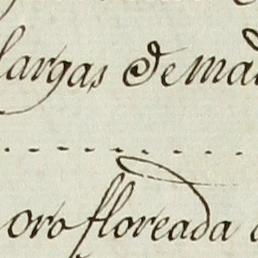 largas de ma
oro floreada